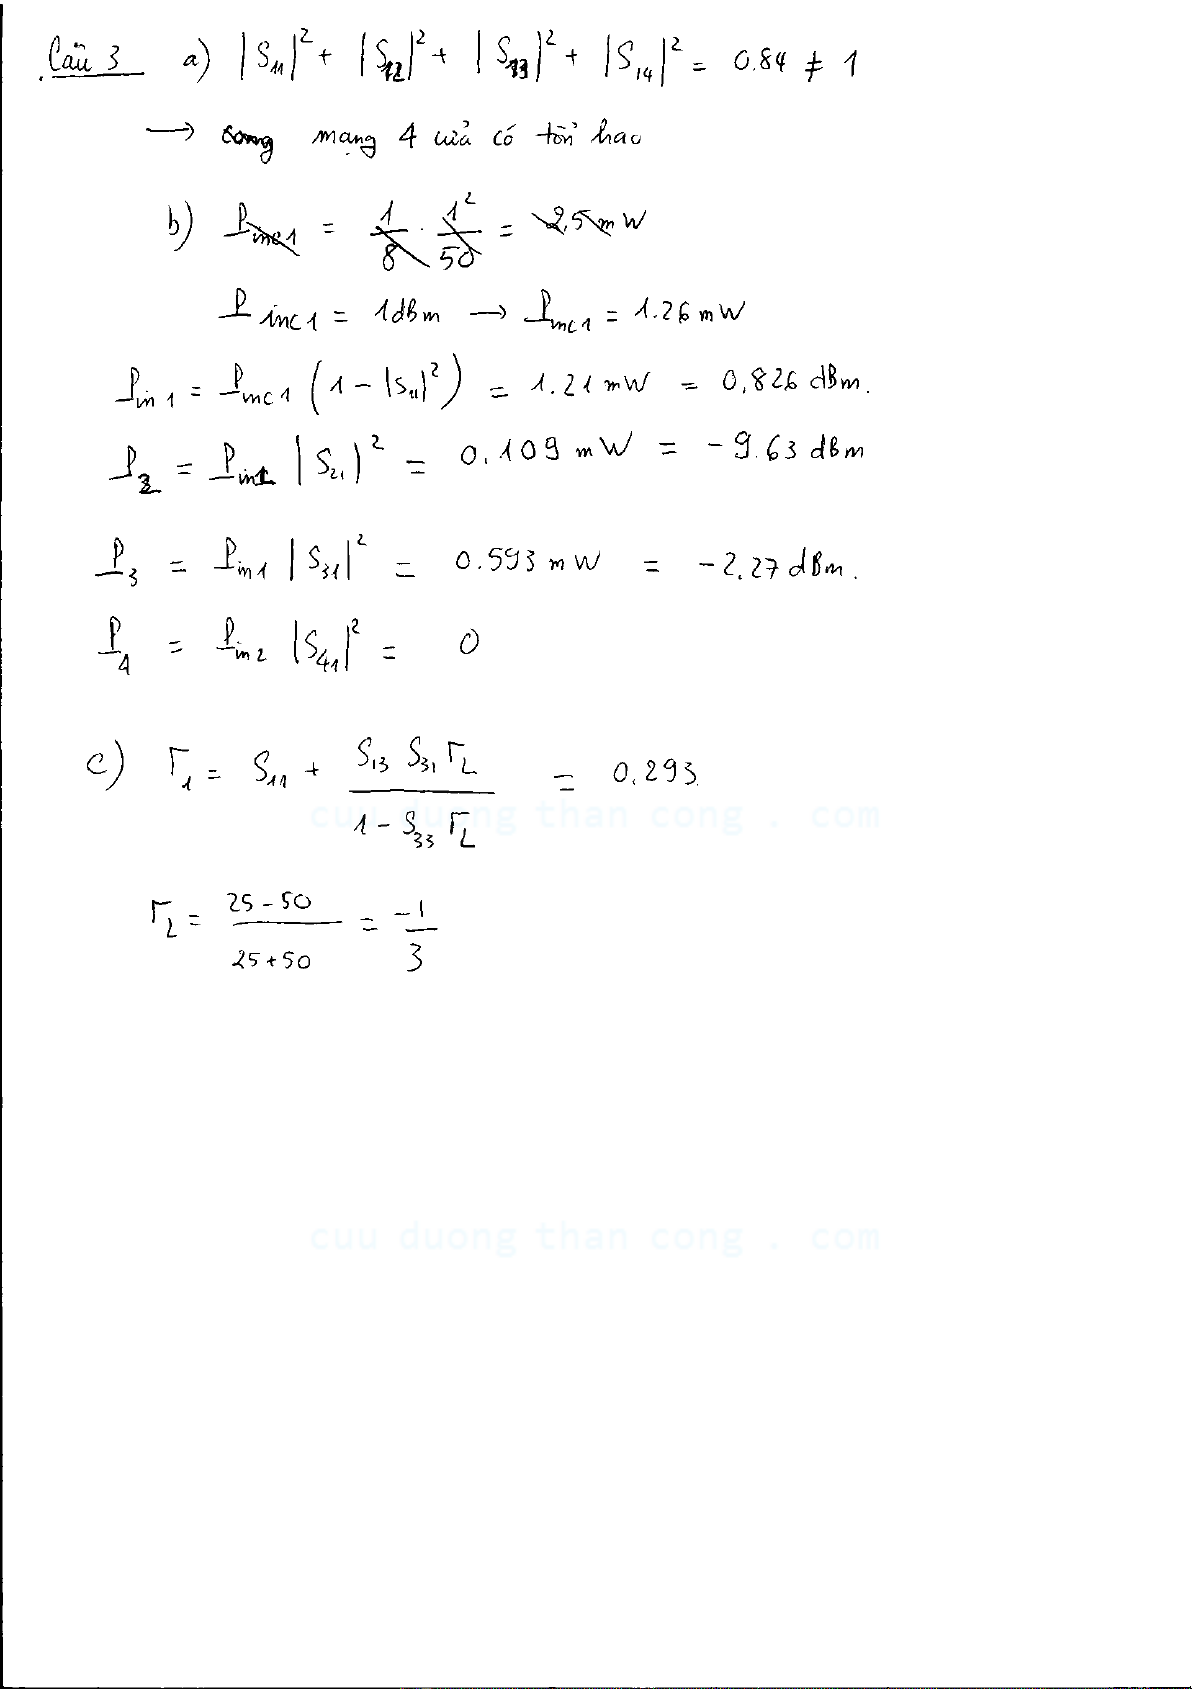 Câu 3 a) |S₁₁|² + |S₁₂|² + |S₁₃|² + |S₁₄|² = 0.84 ≠ 1
→ mạng 4 cửa có tổn hao
b) P_inc1 = 1/8 · 1²/50 = 2,5 mW
P_inc1 = 1dBm → P_inc1 = 1.26 mW
P_in1 = P_inc1 (1 - |S₁₁|²) = 1.21 mW = 0,826 dBm.
P₂ = P_in1 |S₂₁|² = 0.109 mW = -9.63 dBm
P₃ = P_in1 |S₃₁|² = 0.593 mW = -2.27 dBm.
P₄ = P_in2 |S₄₁|² = 0
c) Γ₁ = S₁₁ + (S₁₃ S₃₁ Γ_L)/(1 - S₃₃ Γ_L) = 0.293
cuu duong than cong . com
Γ_L = (25 - 50)/(25 + 50) = -1/3
cuu duong than cong . com